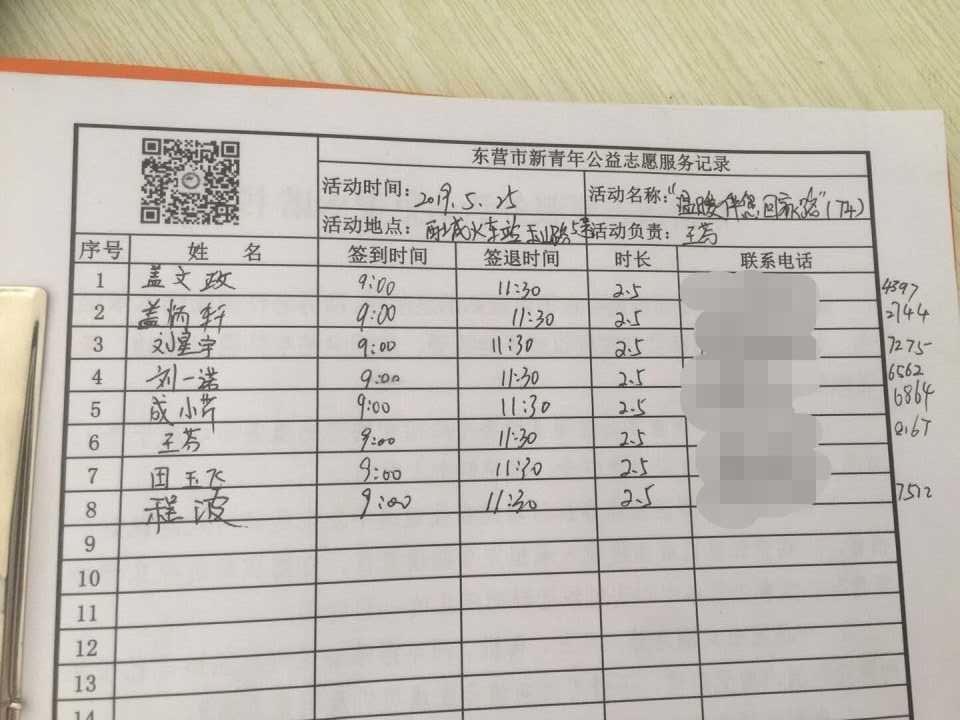 东营市新青年公益志愿服务记录
活动时间：2019.5.25 活动名称："温暖伴您回家路"(74)
活动地点： 火车站 活动负责：王芳
序号 姓名 签到时间 签退时间 时长 联系电话
1 盖文政 9:00 11:30 2.5 4397
2 盖炳轩 9:00 11:30 2.5 2744
3 刘星宇 9:00 11:30 2.5 7275
4 刘一诺 9:00 11:30 2.5 6562
5 成小芹 9:00 11:30 2.5 6864
6 王芳 9:00 11:30 2.5
7 田玉飞 9:00 11:30 2.5
8 程波 9:00 11:30 2.5 7512
9
10
11
12
13
14